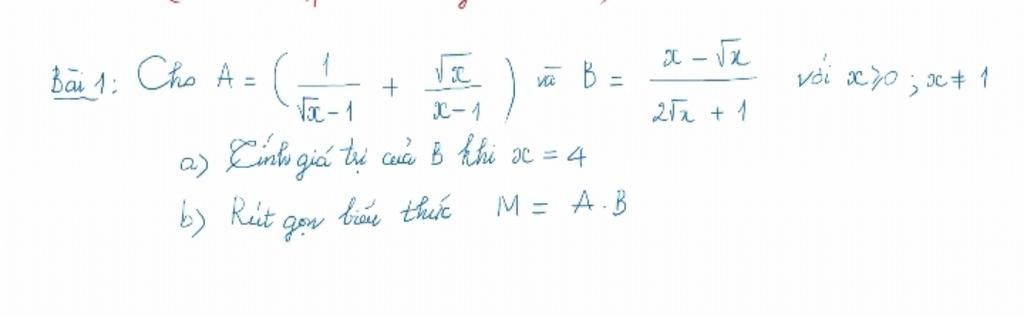 Bài 1: Cho A = ( 1/(√x - 1) + √x/(x - 1) ) và B = (x - √x)/(2√x + 1) với x ≥ 0 ; x ≠ 1
a) Tính giá trị của B khi x = 4
b) Rút gọn biểu thức M = A . B